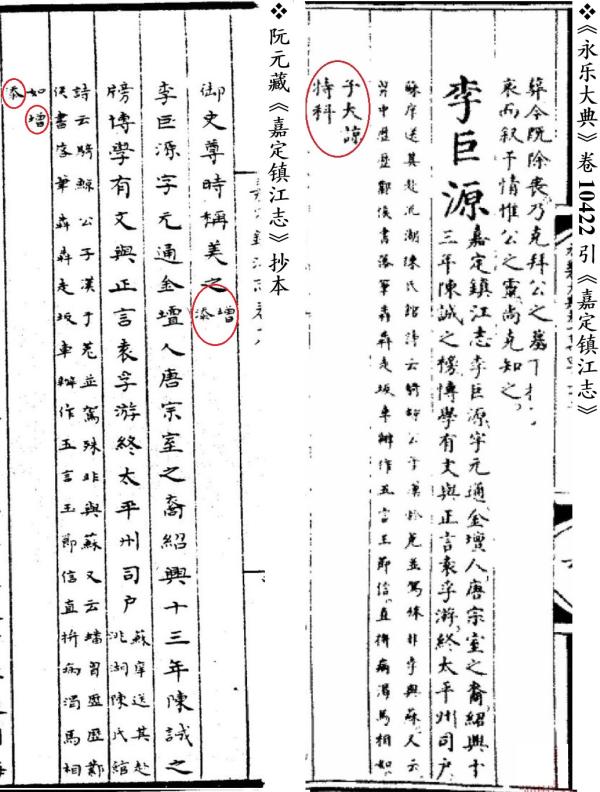 ❖《永乐大典》卷 10422 引《嘉定镇江志》
葬令既除喪乃克拜公之墓下
哀而叙予情惟公之靈尚克知之
李巨源
嘉定鎮江志李巨源字元通金壇人唐宗室之裔紹興十
三年陳誠之榜博學有文與正言袁孚游終太平州司戶
蘇庠送其赴洮湖陳氏館詩云騎鯨公子漢於菟並駕殊非與蘇又云
習中歷歷鄴侯書落筆犇犇走坂車辦作五言王節信直拚病渴馬相如
子大諒
特科
❖ 阮元藏《嘉定镇江志》抄本
御史尊時稱美之
增
添
李巨源字元通金壇人唐宗室之裔紹興十三年陳誠之
牓博學有文與正言袁孚游終太平州司戶
蘇庠送其赴
洮湖陳氏館
詩云騎鯨公子漢于菟並駕殊非與蘇又云蟠胷歷歷鄴
侯書落筆犇犇走坂車辦作五言王節信直拚病渴馬相
如
增
添